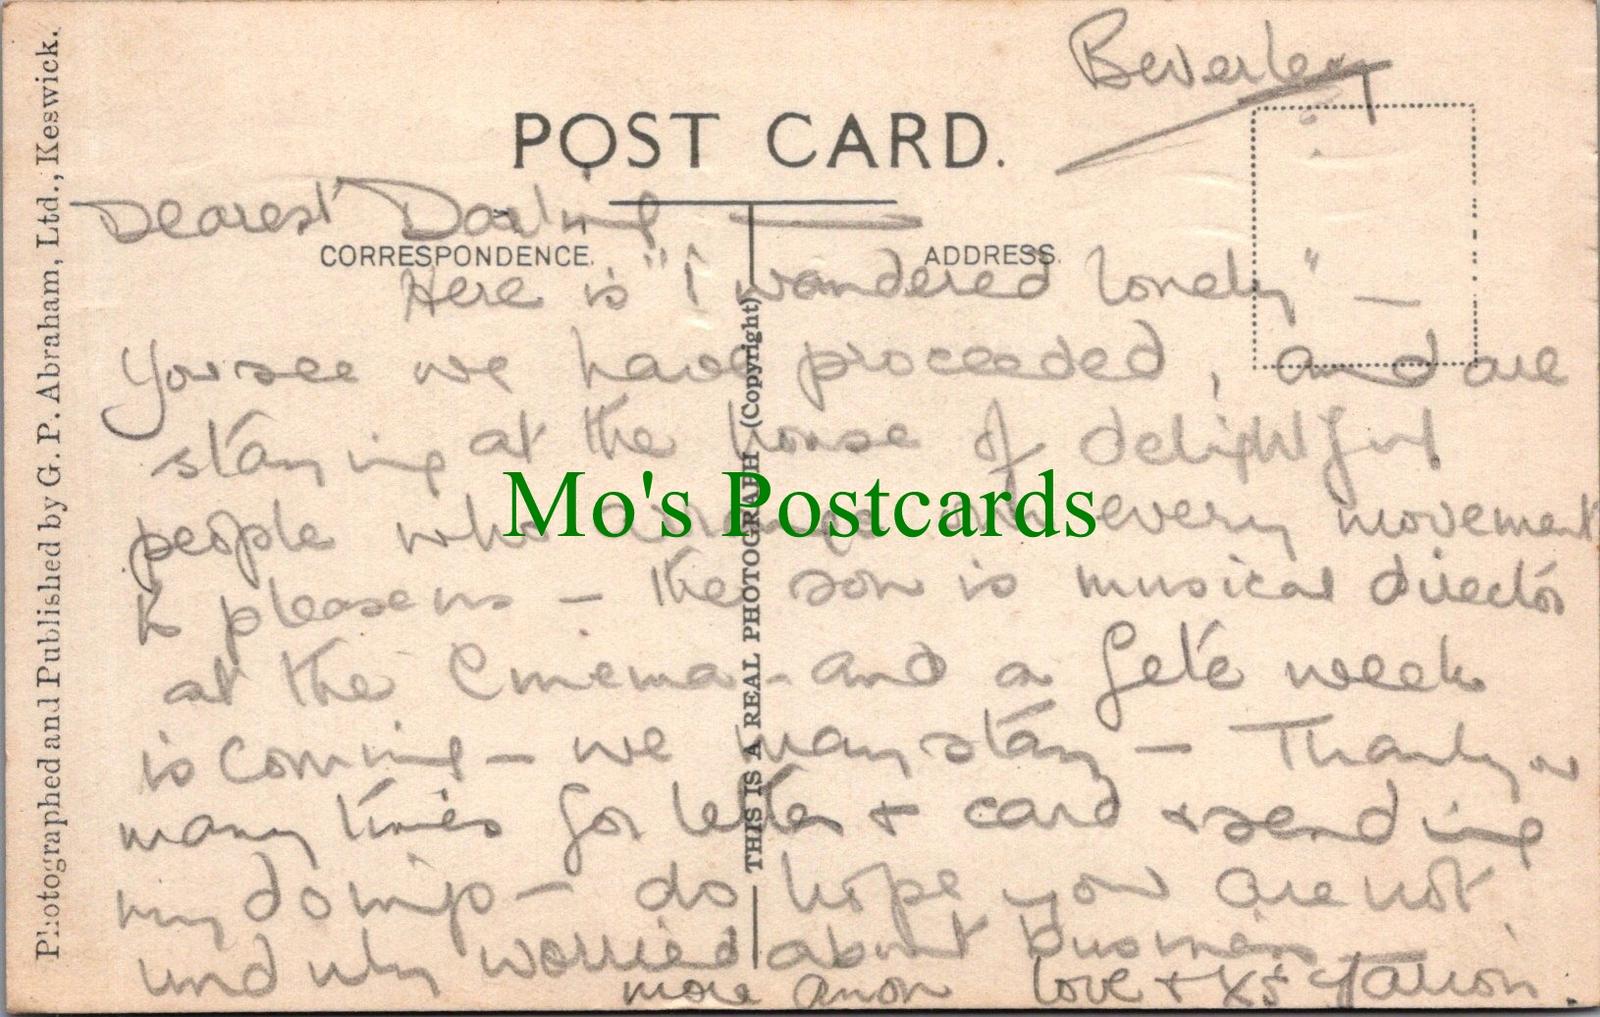 Beverley
POST CARD.
Dearest Darling —
CORRESPONDENCE.
ADDRESS.
Here is "I wandered lonely" —
You see we have proceeded, and are
staying at the house of delightful
people who arrange our every movement
to please us — the son is musical director
at the Cinema - and a fete week
is coming — we may stay — Thank you
many times for letter & card & sending
my — do hope you are not
unduly worried about business —
more anon love & X's
Photographed and Published by G. P. Abraham, Ltd., Keswick.
THIS IS A REAL PHOTOGRAPH (Copyright)
Mo's Postcards